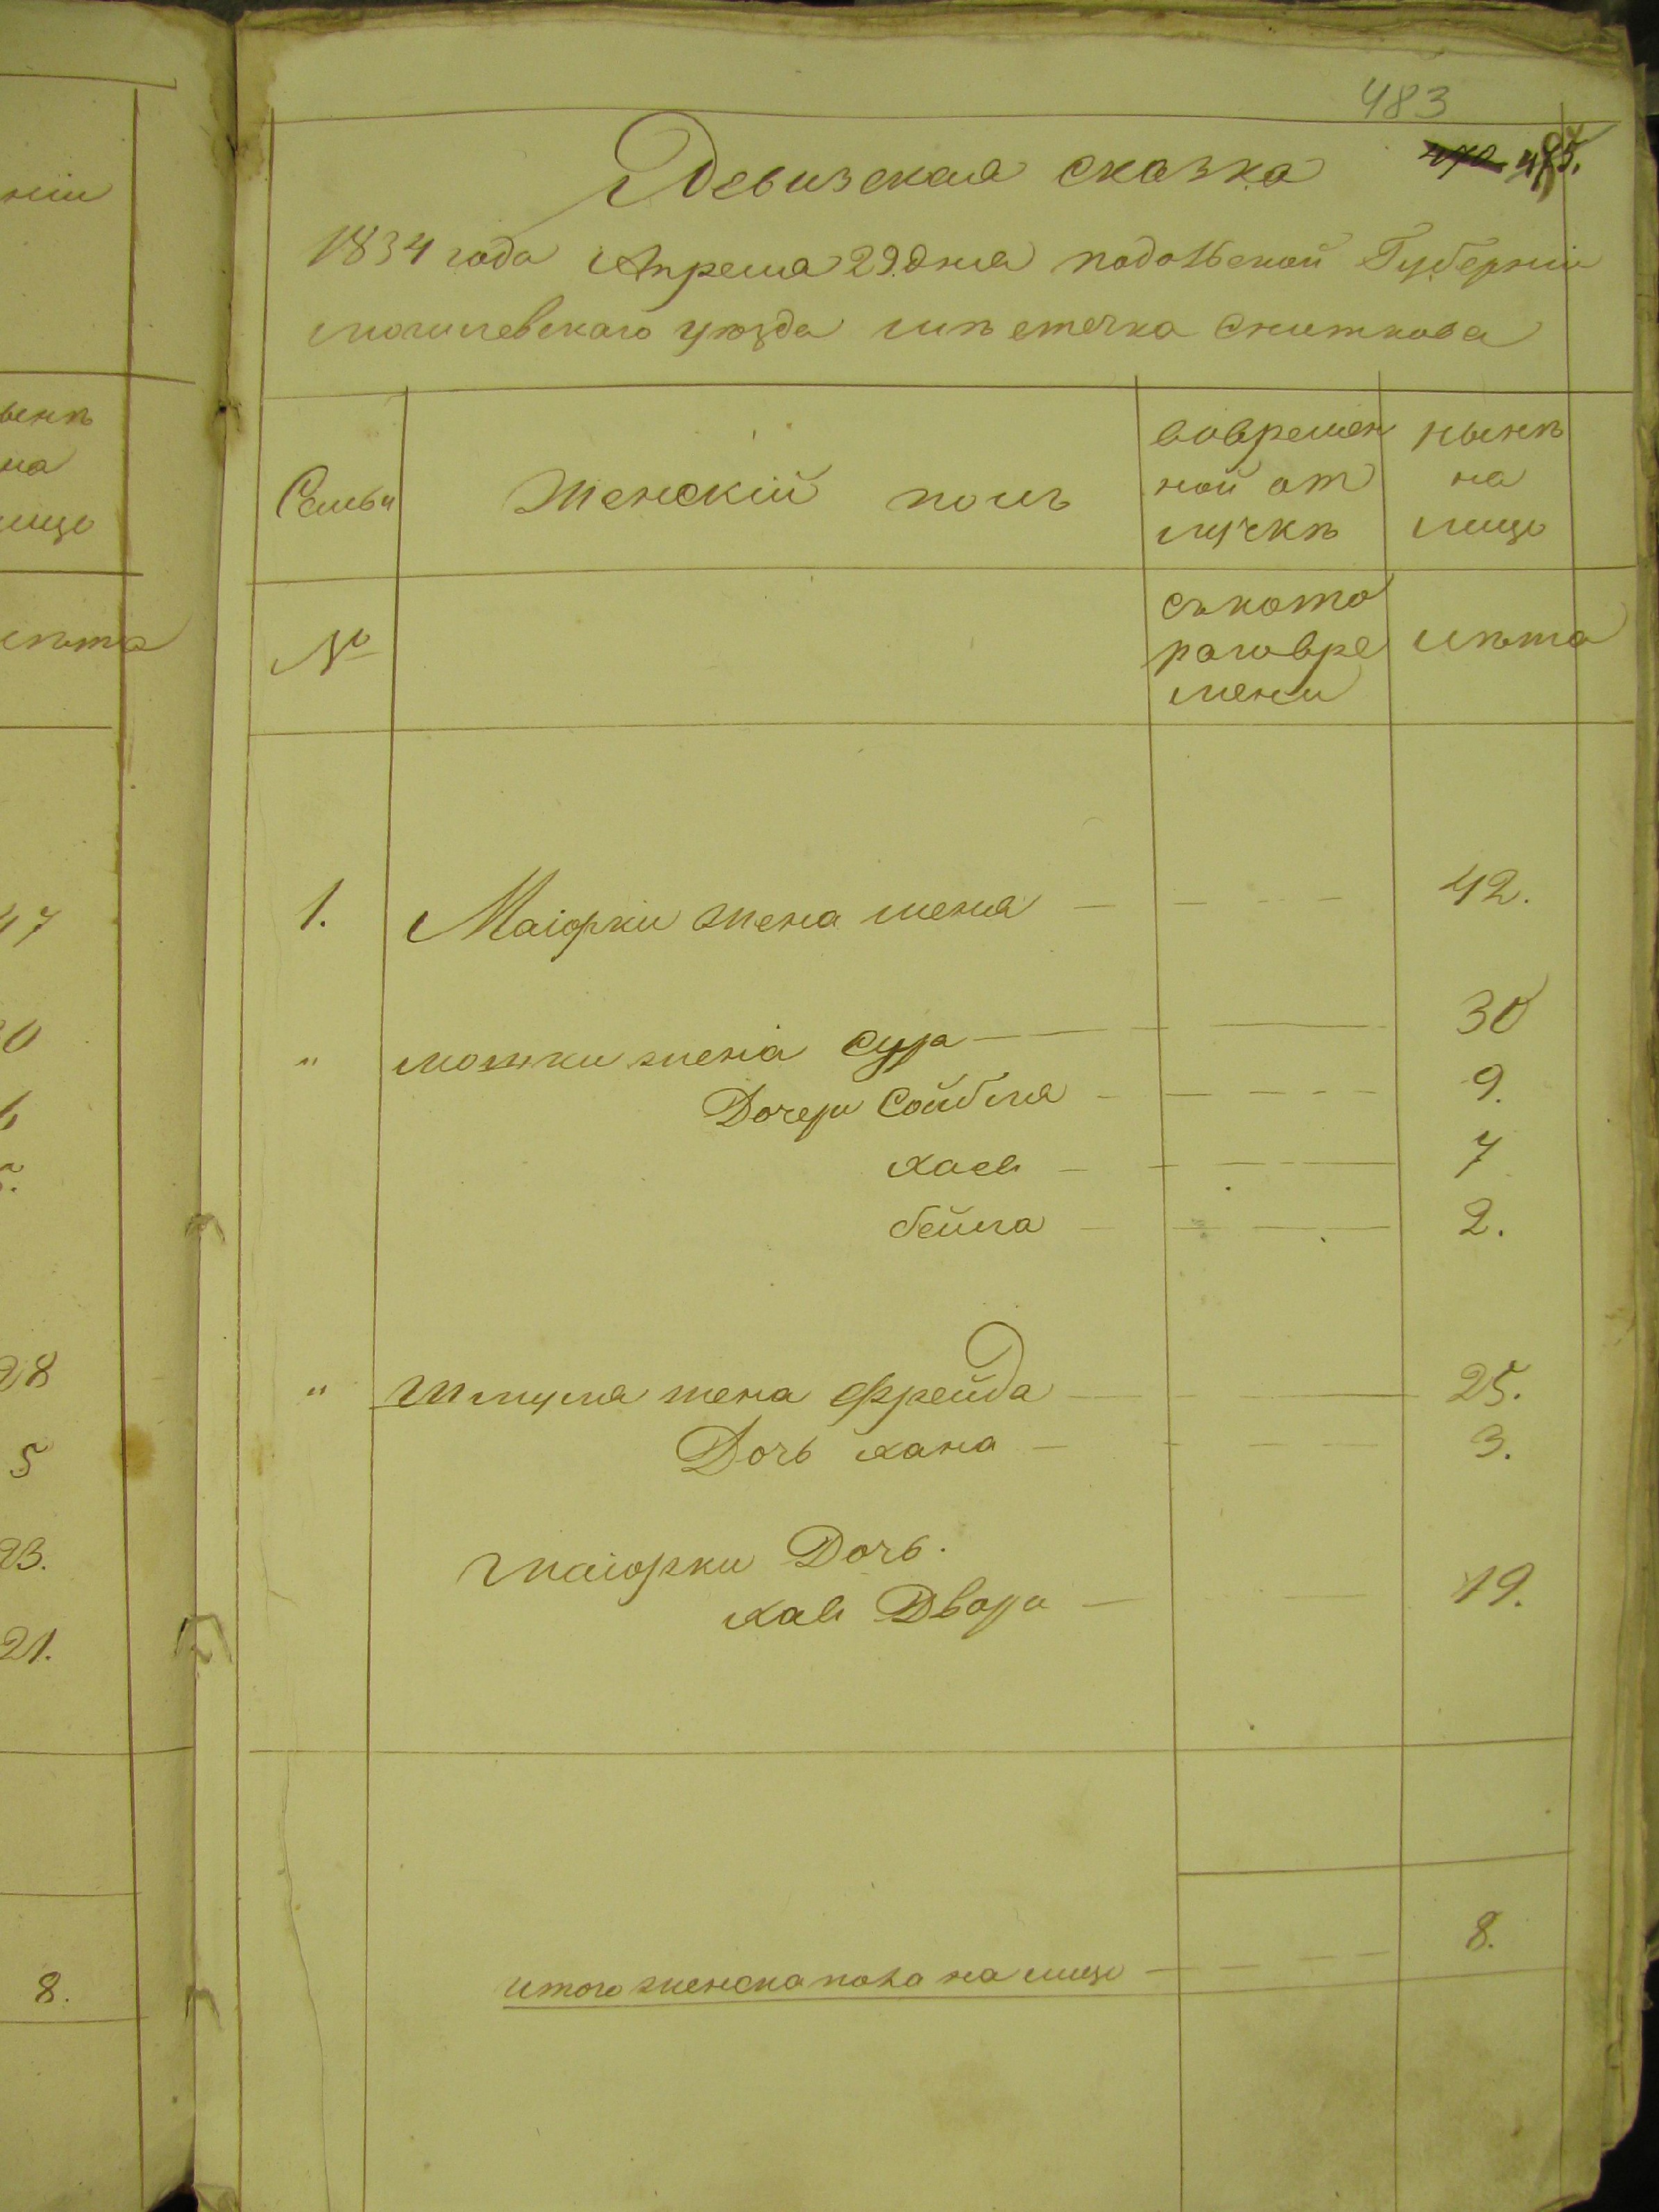 483
485.
Ревизская сказка
1834 года Апреля 29. дня подольской Губерніи
могилевскаго уезда мѣстечка Сниткова
Семьи
Женскій полъ
вовремен
ной от
лучкѣ
нынѣ
на
лицо
№
съкото
раговре
мени
лѣта
1. Маіорки жена леня 42.
" мошки жена сура 30
Дочери Сойбля 9.
хася 7
бейла 2.
" Шмуля жена Фрейда 25.
Дочь хана 3.
Маіорки Дочь.
хая Двора 19.
итого женска пола на лицо 8.
ніи
нынѣ
на
лицо
лѣта
47
28
5
23.
21.
8.